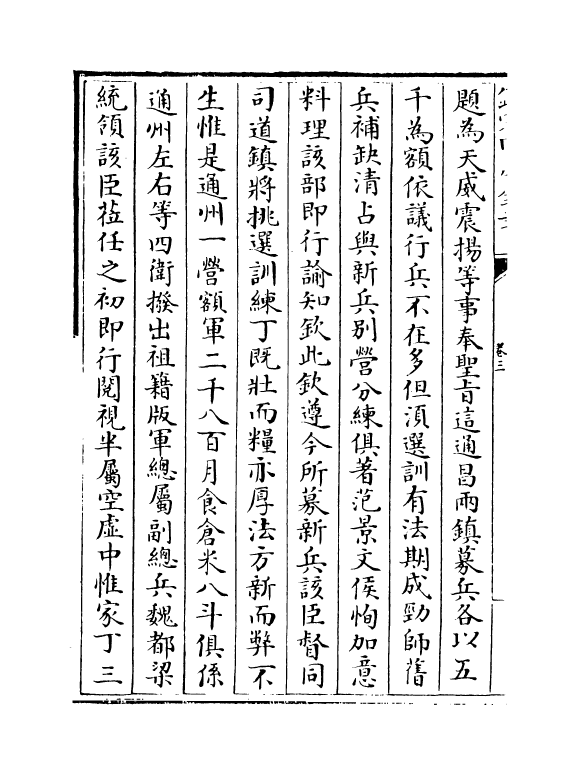 題為天威震揚等事奉聖旨這通昌兩鎮募兵各以五
千為額依議行兵不在多但須選訓有法期成勁師舊
兵補缺清占與新兵別營分練俱著范景文侯恂加意
料理該部即行諭知欽此欽遵今所募新兵該臣督同
司道鎮將挑選訓練丁既壯而糧亦厚法方新而弊不
生惟是通州一營額軍二千八百月食倉米八斗俱係
通州左右等四衛撥出祖籍版軍總屬副總兵魏都梁
統領該臣蒞任之初即行閱視半屬空虛中惟家丁三
卷三